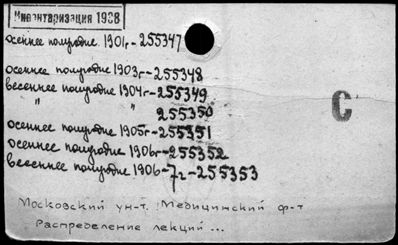 Инвентаризация 1938
осеннее полугодие 1901г-255347
осеннее полугодие 1903г-255348
весеннее полугодие 1904г-255349
" " 255350
осеннее полугодие 1905г-255351
осеннее полугодие 1906г-255352
весеннее полугодие 1906-7г-255353
С
Московский ун-т. Медицинский ф-т
Распределение лекций ...